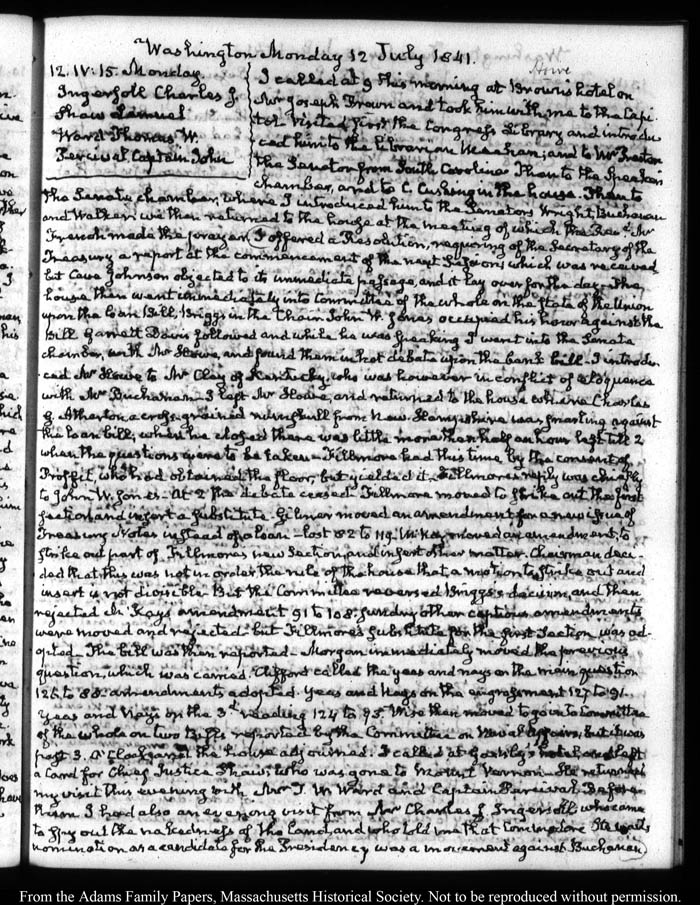 Washington Monday 12 July 1841.
12. IV: 15. Monday.
Ingersoll Charles J.
Shaw Lemuel
Ward Thomas W.
Percival, Captain John
Howe
I called at 9 this morning at Brown's hotel on
Mr Joseph Brown and took him with me to the Capi-
tol visited first the Congress Library and introdu-
ced him to the Librarian Meehan; and to Mr Preston
the Senator from South Carolina. Then to the Speaker's
chamber, and to C. Cushing in the house. Then to
the Senate chamber, where I introduced him to the Senators Wright, Buchanan
and Walker. we then returned to the house at the meeting of which the Revd. Mr
French made the prayer. I offered a Resolution, requiring of the Secretary of the
Treasury a report at the commencement of the next Session, which was received
but Cave Johnson objected to its immediate passage, and it lay over for the day. The
house then went immediately into Committee of the whole on the State of the Union
upon the Loan Bill, Briggs in the Chair. John W. Jones occupied his hour against the
Bill. Garrett Davis followed and while he was speaking I went into the Senate
chamber, with Mr Howe, and found them in hot debate upon the bank bill. I introdu-
ced Mr Howe to Mr Clay of Kentucky, who was however in conflict of eloquence
with Mr Buchanan. I left Mr Howe, and returned to the house where Charles
G. Atherton a cross-grained numskull from New Hampshire was snarling against
the loan bill; when he closed there was little more than half an hour left till 2
when the questions were to be taken. Fillmore had this time by the consent of
Proffit, who had obtained the floor, but yielded it. Fillmore's reply was chiefly
to John W. Jones. At 2 the debate ceased. Fillmore moved to strike out the first
section and insert a substitute. Gilmer moved an amendment for a new issue of
Treasury Notes instead of a Loan - lost 82 to 119. McKay moved an amendment, to
strike out part of Fillmore's new Section and insert other matter. Chairman deci-
ded that this was not in order, the rule of the house that a motion to strike out and
insert is not divisible. But the Committee reversed Briggs's decision, and then
rejected McKay's amendment 91 to 108. Sundry other captious amendments
were moved and rejected - but Fillmore's substitute for the first Section was ad-
opted. The bill was then reported. Morgan immediately moved the previous
question, which was carried. Clifford called the yeas and nays on the main question
126 to 88. amendments adopted. Yeas and Nays on the engrossment 127 to 91.
Yeas and Nays on the 3d reading 124 to 95. Wise then moved to go into Committee
of the whole on two Bills reported by the Committee on Naval Affairs, but it was
past 3. O'Clock and the house adjourned. I called at Gadsby's hotel and left
a Card for Chief Justice Shaw, who was gone to Mount Vernon. He returned
my visit this evening with Mr T. W. Ward and Captain Percival. Before
them I had also an evening visit from Mr Charles J. Ingersoll who came
to spy out the nakedness of the land, and who told me that Commodore Stewart's
nomination as a candidate for the Presidency was a movement against Buchanan
From the Adams Family Papers, Massachusetts Historical Society. Not to be reproduced without permission.